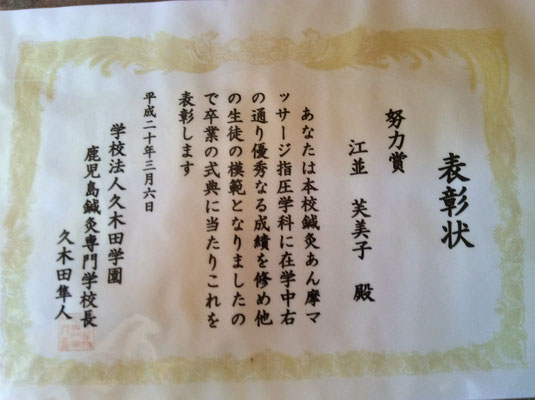 表彰状
努力賞
江並 芙美子 殿
あなたは本校鍼灸あん摩マ
ッサージ指圧学科に在学中右
の通り優秀なる成績を修め他
の生徒の模範となりましたの
で卒業の式典に当たりこれを
表彰します
平成二十年三月六日
学校法人久木田学園
鹿児島鍼灸専門学校長
久木田隼人